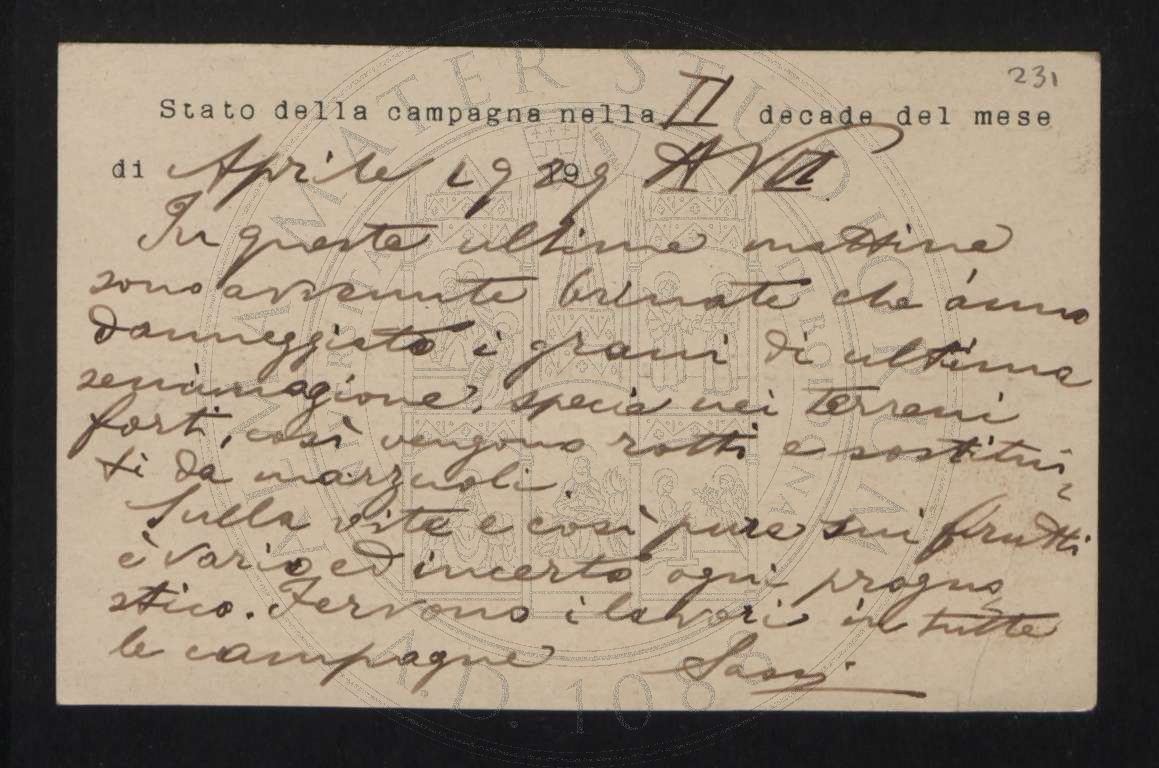 231
Stato della campagna nella II decade del mese
di Aprile 1929 A VII
In queste ultime mattine
sono avvenute brinate che ánno
danneggiato i grani di ultima
seminagione, specie nei terreni
forti, così vengono rotti e sostitui
ti da marzuoli.
Sulla vite e così pure sui frutti
è vario ed incerto ogni progno
stico. Fervono i lavori in tutte
le campagne Sassi